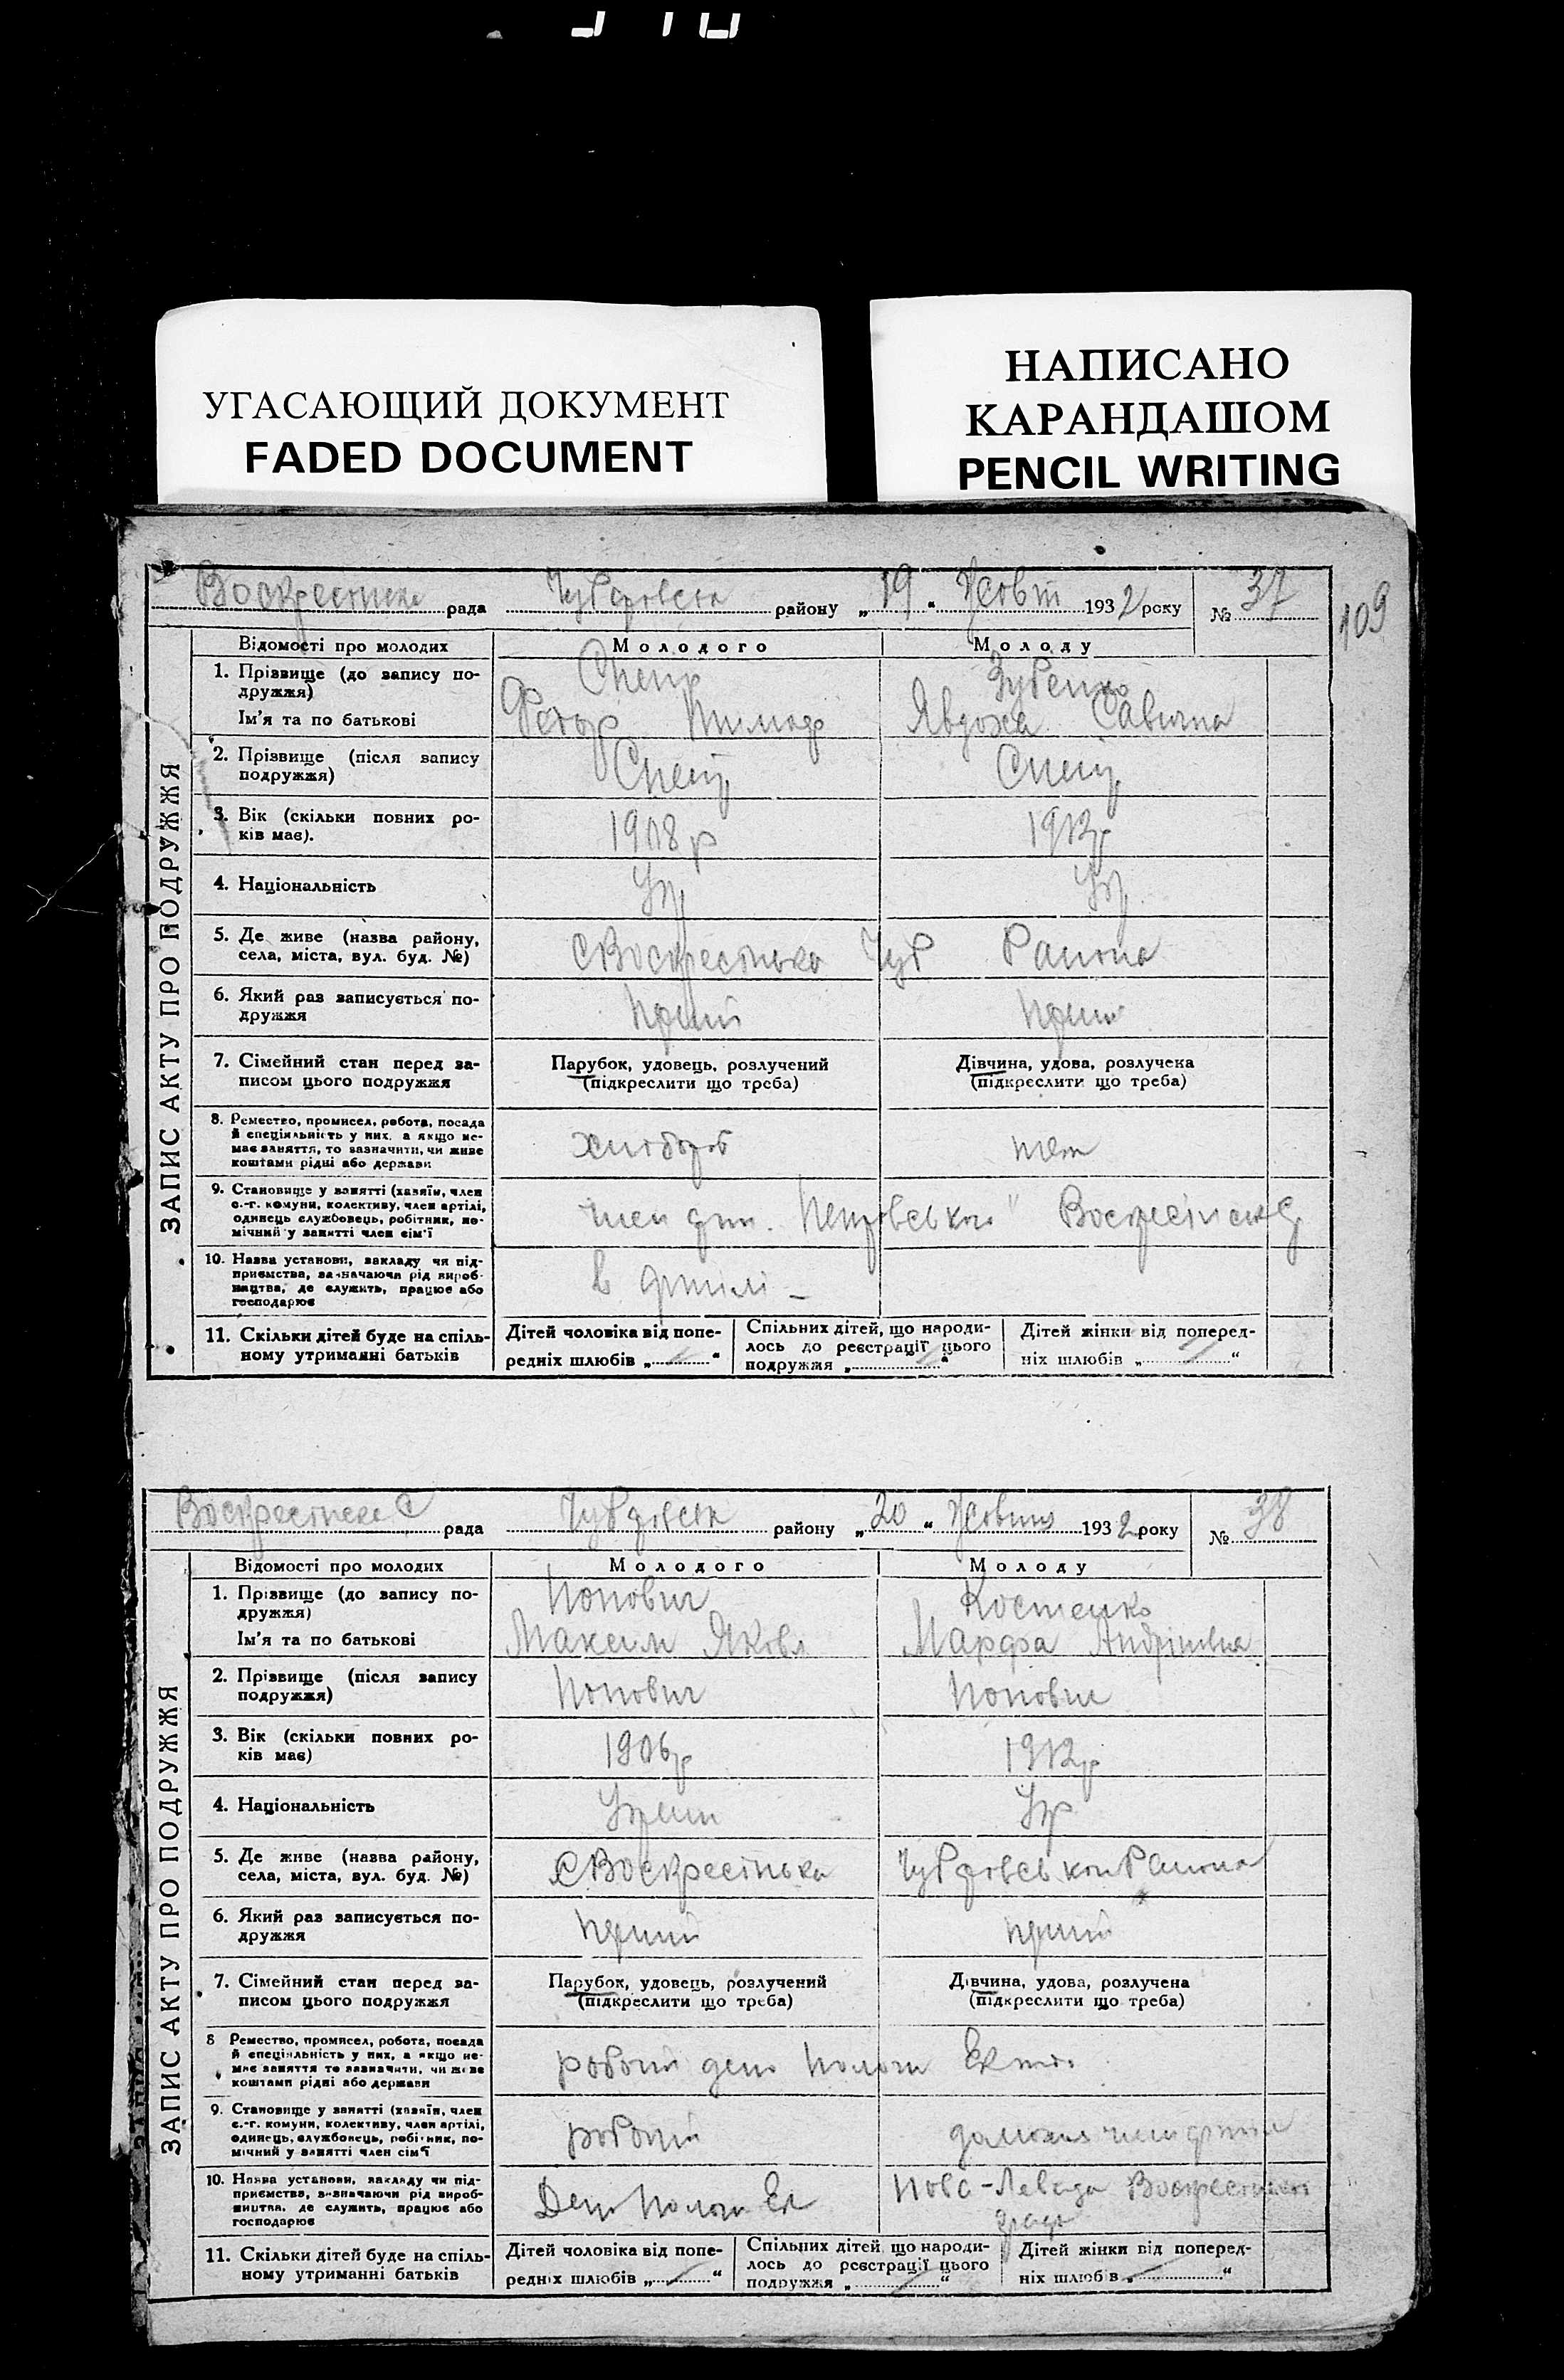 УГАСАЮЩИЙ ДОКУМЕНТ
FADED DOCUMENT
НАПИСАНО
КАРАНДАШОМ
PENCIL WRITING
109
ЗАПИС АКТУ ПРО ПОДРУЖЖЯ
рада району „19“ Жовт 1932 року № 37
Відомості про молодих Молодого Молоду
1. Прізвище (до запису по-
дружжя)
Зубенко
Ім'я та по батькові
Федор Явдоха Савична
2. Прізвище (після запису
подружжя)
3. Вік (скільки повних ро-
ків має).
1908 р 1912р
4. Національність
Укр Укр
5. Де живе (назва району,
села, міста, вул. буд. №)
Чуб Района
6. Який раз записується по-
дружжя
7. Сімейний стан перед за-
писом цього подружжя
Парубок, удовець, розлучений
(підкреслити що треба)
Дівчина, удова, розлучена
(підкреслити що треба)
8. Ремество, промисел, робота, посада
й спеціяльність у них, а якщо не-
має заняття, то зазначити, чи живе
коштами рідні або держави
хлібороб
9. Становище у занятті (хазяїн, член
с.-г. комуни, колективу, член артілі,
одинець службовець, робітник, по-
мічний у занятті член сім'ї
член
10. Назва установи, закладу чи під-
приємства, зазначаючи рід вироб-
ництва, де служить, працює або
господарює
в артілі –
11. Скільки дітей буде на спіль-
ному утриманні батьків
Дітей чоловіка від попе-
редніх шлюбів „ “
Спільних дітей, що народи-
лось до реєстрації цього
подружжя „ “
Дітей жінки від поперед-
ніх шлюбів „ “
ЗАПИС АКТУ ПРО ПОДРУЖЖЯ
рада району „20“ 1932 року № 38
Відомості про молодих Молодого Молоду
1. Прізвище (до запису по-
дружжя)
Попович Костенко
Ім'я та по батькові
Максим Яковл Марфа Андріївна
2. Прізвище (після запису
подружжя)
Попович Попович
3. Вік (скільки повних ро-
ків має)
1906р 1912р
4. Національність
Укр
5. Де живе (назва району,
села, міста, вул. буд. №)
6. Який раз записується по-
дружжя
7. Сімейний стан перед за-
писом цього подружжя
Парубок, удовець, розлучений
(підкреслити що треба)
Дівчина, удова, розлучена
(підкреслити що треба)
8 Ремество, промисел, робота, посада
й спеціяльність у них, а якщо не-
має заняття то зазначити, чи живе
коштами рідні або держави
9. Становище у занятті (хазяїн, член
с.-г. комуни, колективу, член артілі,
одинець, службовець, робітник, по-
мічний у занятті член сім'ї
10. Назва установи, закладу чи під-
приємства, зазначаючи рід вироб-
ництва, де служить, працює або
господарює
Депо Пологи Ек Нова-Левада
11. Скільки дітей буде на спіль-
ному утриманні батьків
Дітей чоловіка від попе-
редніх шлюбів „ “
Спільних дітей, що народи-
лось до реєстрації цього
подружжя „ “
Дітей жінки від поперед-
ніх шлюбів „ “